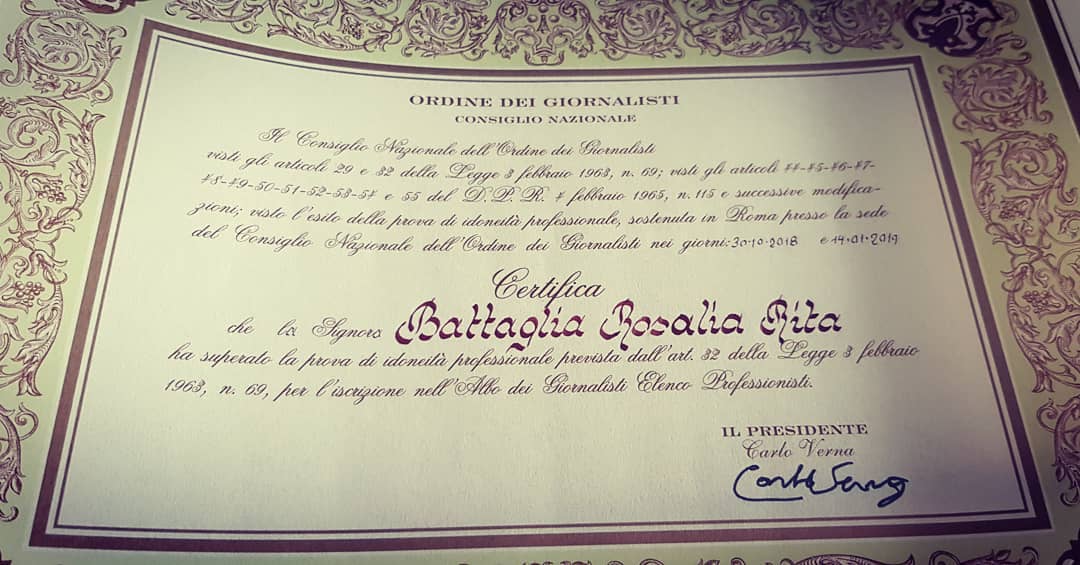 ORDINE DEI GIORNALISTI
CONSIGLIO NAZIONALE
Il Consiglio Nazionale dell'Ordine dei Giornalisti
visti gli articoli 29 e 32 della Legge 3 febbraio 1963, n. 69; visti gli articoli 44-45-46-47-
48-49-50-51-52-53-54 e 55 del D. P. R. 4 febbraio 1965, n. 115 e successive modifica-
zioni; visto l'esito della prova di idoneità professionale, sostenuta in Roma presso la sede
del Consiglio Nazionale dell'Ordine dei Giornalisti nei giorni: 30·10·2018 e 14·01·2019
Certifica
che la Signora Battaglia Rosalia Rita
ha superato la prova di idoneità professionale prevista dall'art. 32 della Legge 3 febbraio
1963, n. 69, per l'iscrizione nell'Albo dei Giornalisti Elenco Professionisti.
IL PRESIDENTE
Carlo Verna
Carlo Verna